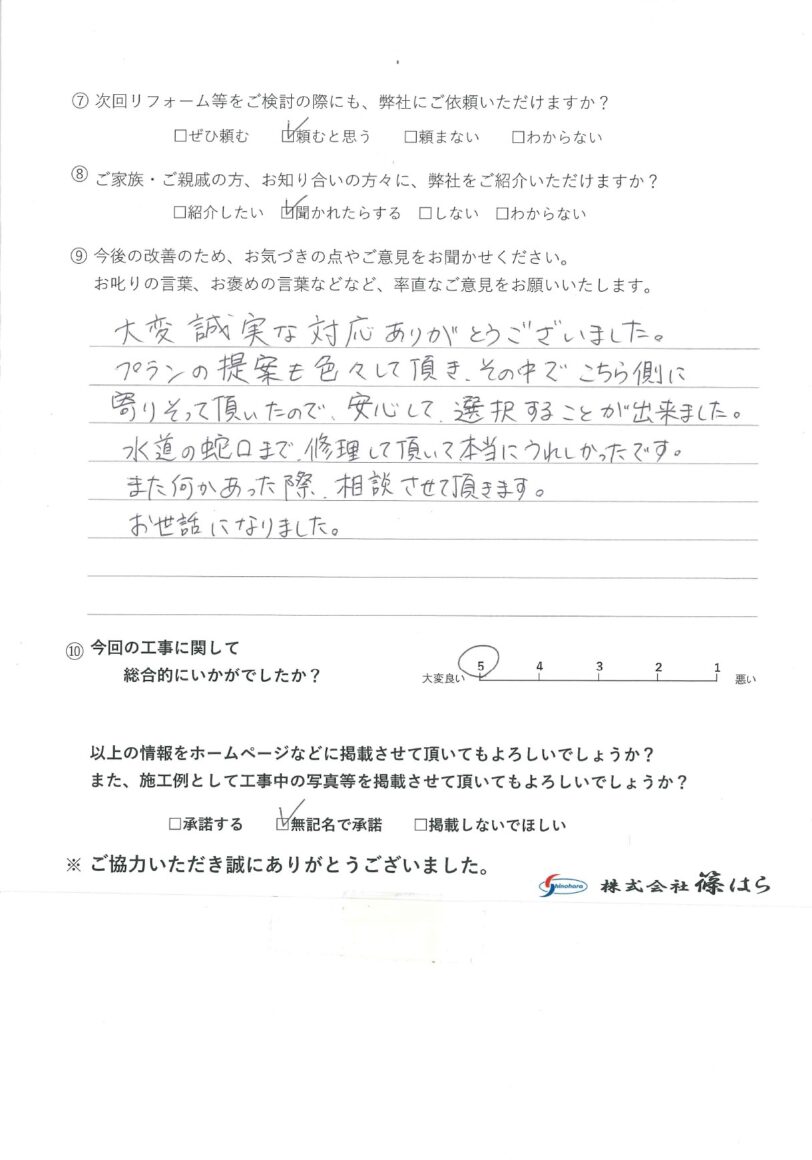 ⑦ 次回リフォーム等をご検討の際にも、弊社にご依頼いただけますか？
□ぜひ頼む ☑頼むと思う □頼まない □わからない
⑧ ご家族・ご親戚の方、お知り合いの方々に、弊社をご紹介いただけますか？
□紹介したい ☑聞かれたらする □しない □わからない
⑨ 今後の改善のため、お気づきの点やご意見をお聞かせください。
お叱りの言葉、お褒めの言葉などなど、率直なご意見をお願いいたします。
大変誠実な対応ありがとうございました。
プランの提案も色々して頂き、その中でこちら側に
寄りそって頂いたので、安心して、選択することが出来ました。
水道の蛇口まで、修理して頂いて本当にうれしかったです。
また何かあった際、相談させて頂きます。
お世話になりました。
⑩ 今回の工事に関して
総合的にいかがでしたか？
5 4 3 2 1
大変良い 悪い
以上の情報をホームページなどに掲載させて頂いてもよろしいでしょうか？
また、施工例として工事中の写真等を掲載させて頂いてもよろしいでしょうか？
□承諾する ☑無記名で承諾 □掲載しないでほしい
※ ご協力いただき誠にありがとうございました。
Shinohara 株式会社 篠はら